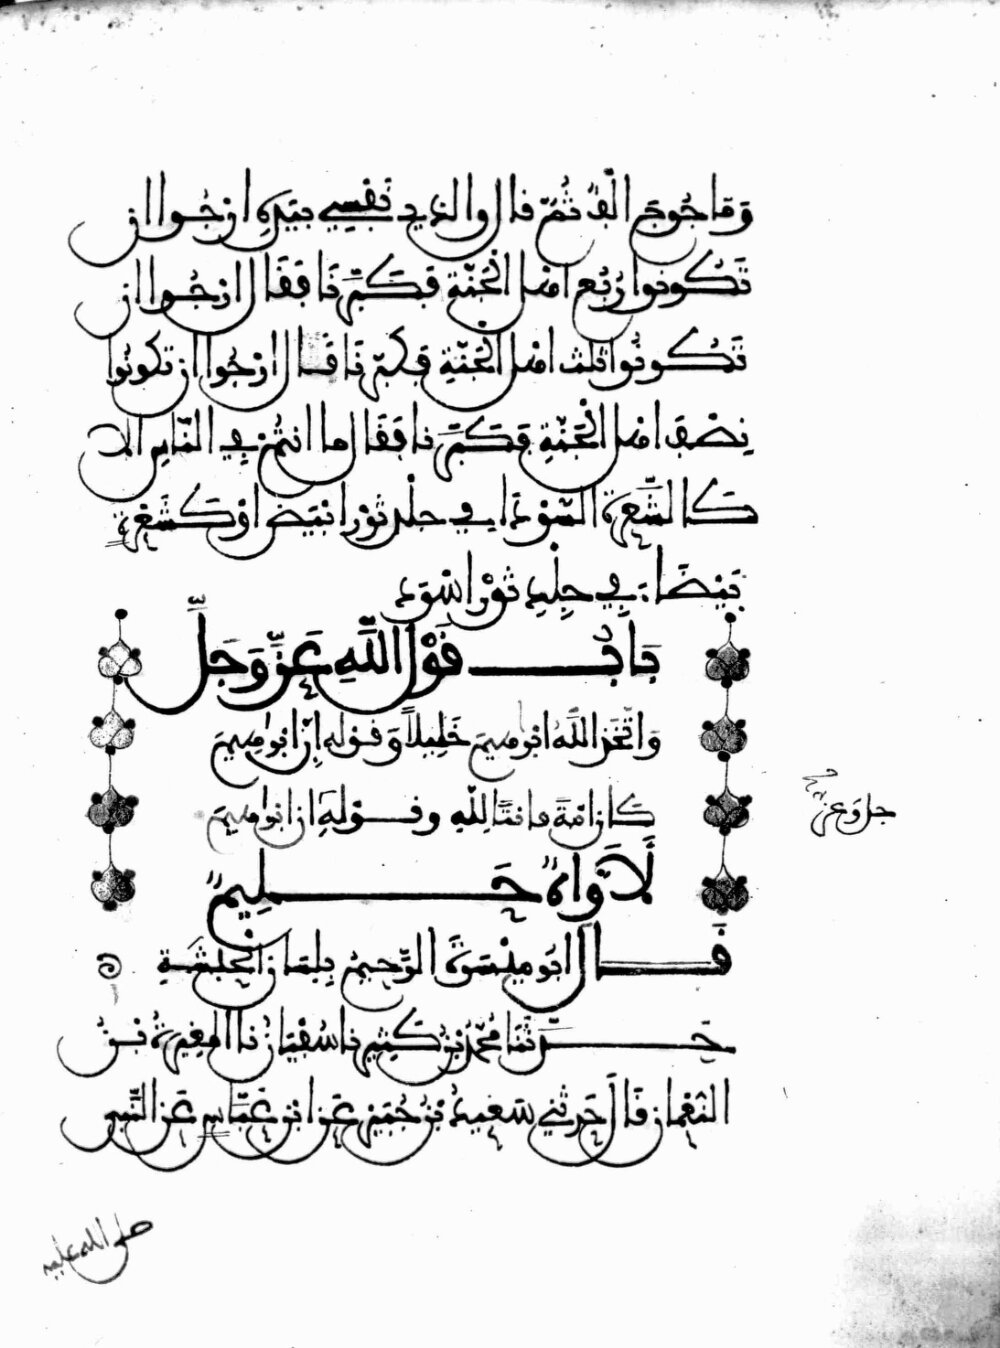 وَمَاجُوجَ أَلْفٌ ثُمَّ قال والذي نَفْسِي بيَدِهِ ارْجُوا ان
تَكُونوا رُبُعَ اهل الْجَنَّةِ فَكَبَّرْنَا فَقَالَ ارْجُوا ان
تَكُونُوا ثلث اهل الْجَنَّةِ فكبّرْنَا فَقَال ارْجُوا ان تكونُوا
نِصْفَ اهل الْجَنَّةِ فَكَبَّرْنا فَقَال ما انتُمْ فِي النّاسِ الا
كَالشَّعَرَةِ السَّوْدَاءِ فِي جلْدِ ثَوْرٍ ابْيَضَ اوْ كَشَعْرَةٍ
بَيْضَاءَ فِي جِلْدِ ثَوْرٍ اسْوَدَ
بَابُ قَوْلِ اللَّهِ عَزَّ وَجَلَّ
وَاتَّخَذَ اللَّهُ ابْرهيمَ خَلِيلاً وَقَوْلِهِ إِنَّ ابْرَاهِيمَ
كَانَ امَّةً قانتًا لِلَّهِ وقَوْلِهِ ان ابْرَاهِيمَ
لَأَوَّاهٌ حَلِيمٌ
قَالَ ابُو مَيْسَرَةَ الرَّحِيمُ بِلِسَانِ الْحَبَشَةِ
حَدَّثَنَا مُحَمَّدُ بْنُ كَثِيرٍ نا سُفْيَانُ نا الْمُغِيرَةُ بْنُ
النُّعْمَانِ قَالَ حَدَّثَنِي سَعِيدُ بْنُ جُبَيْرٍ عَنِ ابْنِ عَبَّاسٍ عَنِ النَّبِيِّ
جل وَعز
صلى الله عليه